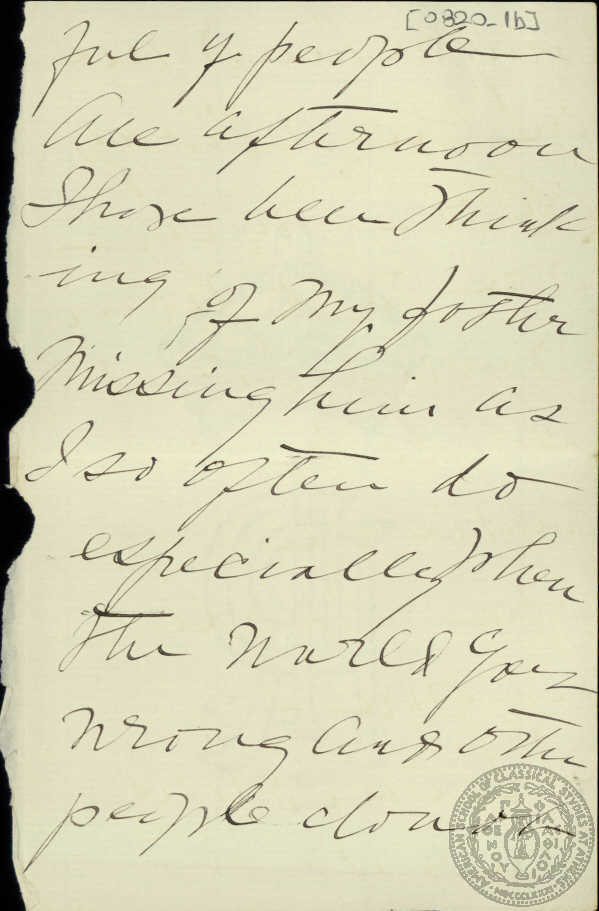 [0820-1b]
ful of people
All afternoon
I have been think
ing of my foster
Missing him as
I so often do
especially when
the world goes
wrong and other
people do
AMERICAN SCHOOL OF CLASSICAL STUDIES AT ATHENS
MDCCCLXXXI